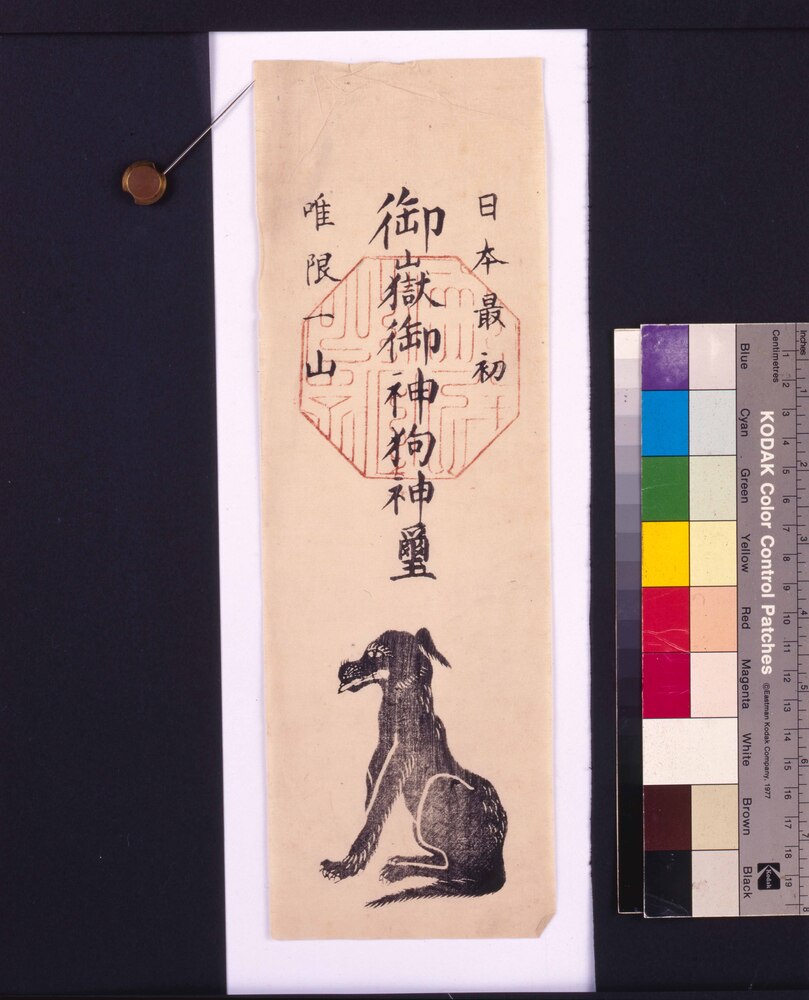 日本最初
御山獄御神狗神璽
唯限一山
KODAK Color Control Patches
©Eastman Kodak Company, 1977
Inches
Centimetres
1 2 3 4 5 6 7 8 9 10 11 12 13 14 15 16 17 18 19
1 2 3 4 5 6 7 8
Blue
Cyan
Green
Yellow
Red
Magenta
White
Brown
Black
Kodak